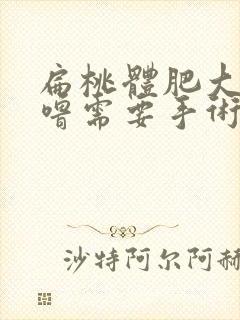 扁桃體肥大
嘚需要手術
沙特阿尔阿赫